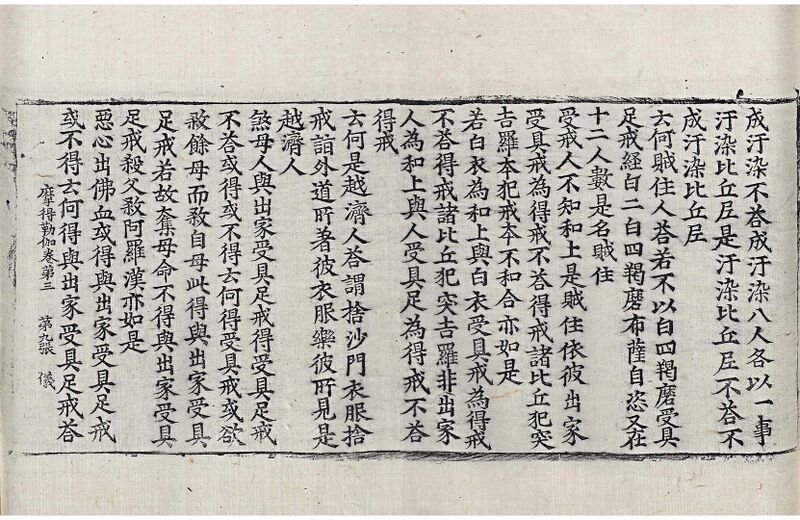 成汙染不荅成汙染八人各以一事
汙染比丘𡰱是汙染比丘𡰱不荅不
成汙染比丘𡰱
云何賊住人荅若不以白四羯磨受具
足戒經白二白四羯磨布薩自恣又在
十二人數是名賊住
受戒人不知和上是賊住依彼出家
受具戒為得戒不荅得戒諸比丘犯突
吉羅本犯戒本不和合亦如是
若白衣為和上與白衣受具戒為得戒
不荅得戒諸比丘犯突吉羅非出家
人為和上與人受具足為得戒不荅
得戒
云何是越濟人荅謂捨沙門衣服捨
戒詣外道所著彼衣服樂彼所見是
越濟人
煞母人與出家受具足戒得受具足戒
不荅或得或不得云何得受具戒或欲
煞餘母而煞自母此得與出家受具
足戒若故𣧑母命不得與出家受具
足戒殺父煞阿羅漢亦如是
惡心出佛血或得與出家受具足戒
或不得云何得與出家受具足戒荅
摩得勒伽卷第三　第九張　儀